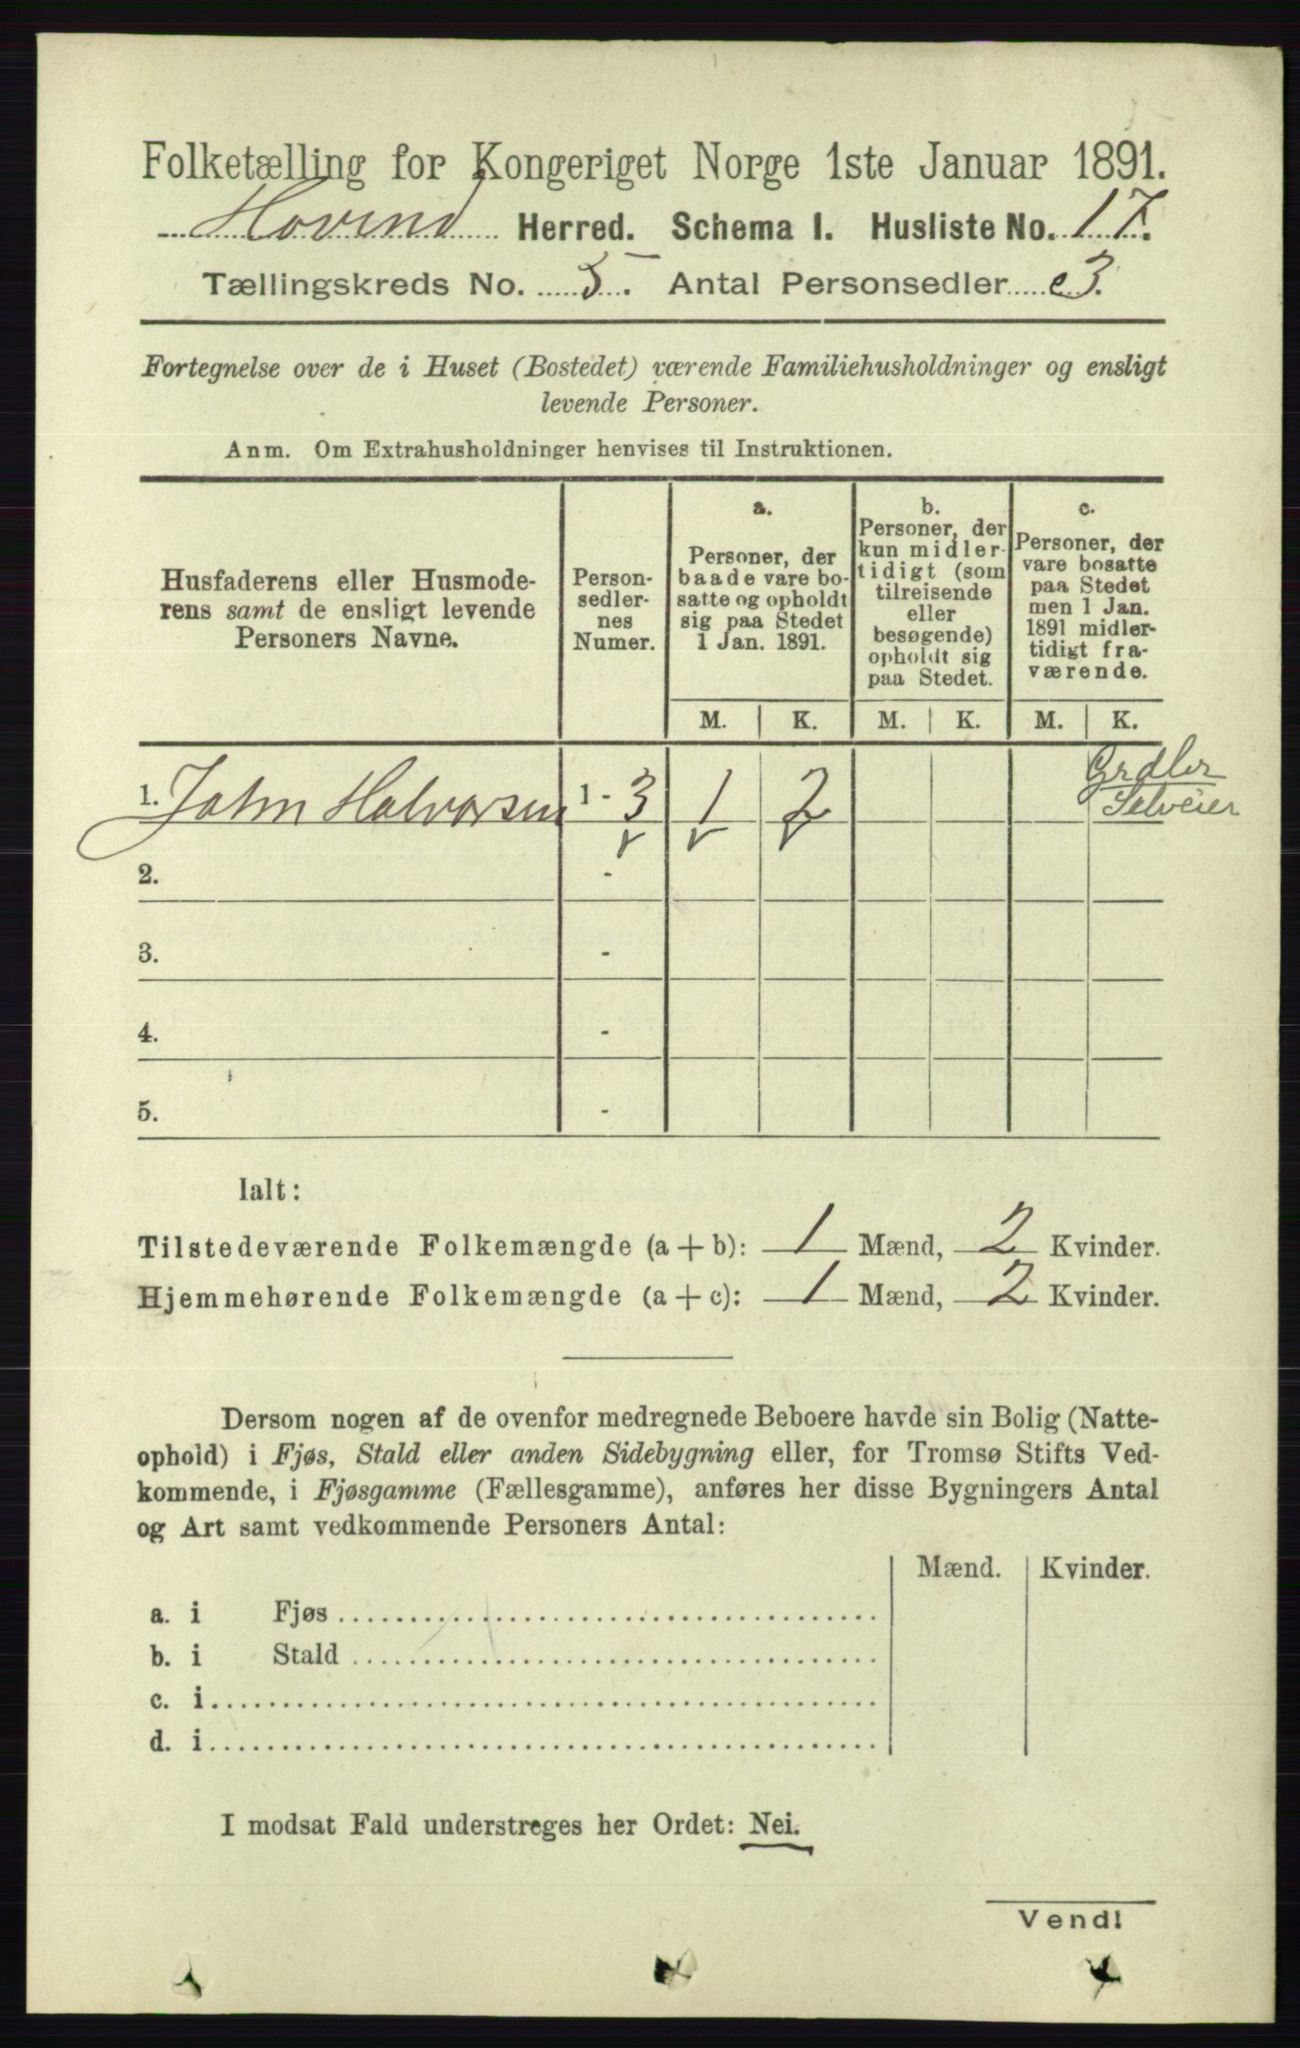 Folketælling for Kongeriget Norge 1ste Januar 1891.
Hovind Herred. Schema I. Husliste No. 17.
Tællingskreds No. 5. Antal Personsedler 3.
Fortegnelse over de i Huset (Bostedet) værende Familiehusholdninger og ensligt
levende Personer.
Anm. Om Extrahusholdninger henvises til Instruktionen.
Husfaderens eller Husmode-
rens samt de ensligt levende
Personers Navne.
Person-
sedler-
nes
Numer.
a.
Personer, der
baade vare bo-
satte og opholdt
sig paa Stedet
1 Jan. 1891.
b.
Personer, der
kun midler-
tidigt (som
tilreisende
eller
besøgende)
opholdt sig
paa Stedet.
c.
Personer, der
vare bosatte
paa Stedet
men 1 Jan.
1891 midler-
tidigt fra-
værende.
M. K. M. K. M. K.
Grdbr
Selveier
1. John Halvorsen 1 - 3 1 2
2. -
3. -
4. -
5. -
Ialt:
Tilstedeværende Folkemængde (a + b): 1 Mænd, 2 Kvinder.
Hjemmehørende Folkemængde (a + c): 1 Mænd, 2 Kvinder.
Dersom nogen af de ovenfor medregnede Beboere havde sin Bolig (Natte-
ophold) i Fjøs, Stald eller anden Sidebygning eller, for Tromsø Stifts Ved-
kommende, i Fjøsgamme (Fællesgamme), anføres her disse Bygningers Antal
og Art samt vedkommende Personers Antal:
Mænd. Kvinder.
a. i Fjøs
b. i Stald
c. i
d. i
I modsat Fald understreges her Ordet: Nei.
Vend!